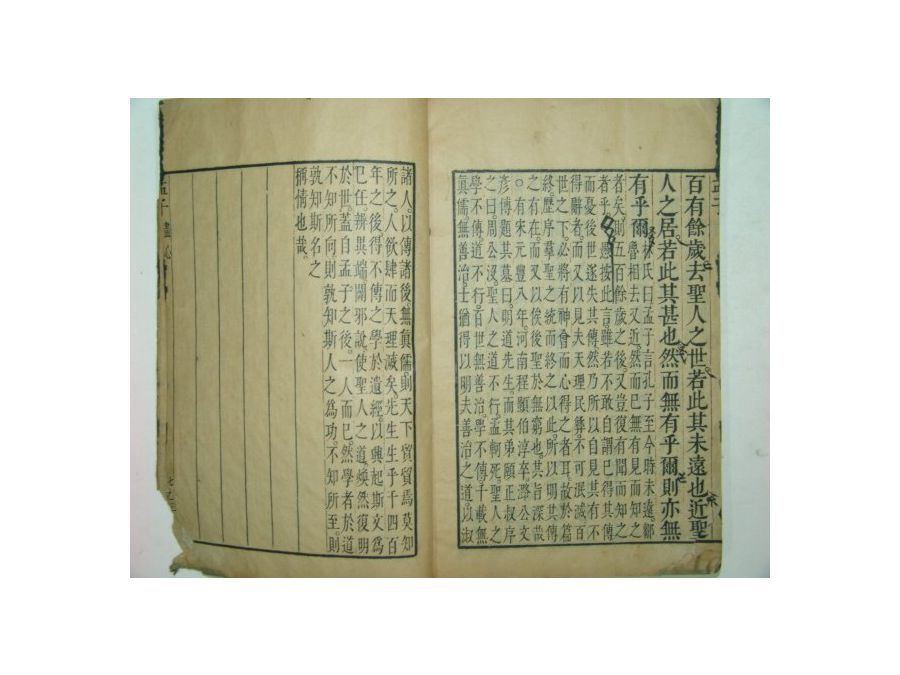 百有餘歲去聖人之世若此其未遠也近聖
人之居若此其甚也然而無有乎爾則亦無
有乎爾
林氏曰孟子言孔子至今時未遠鄒
魯相去又近然而已無有見而知之
者矣則五百餘歲之後又豈復有聞而知之
者乎○愚按此言雖若不敢自謂已得其傳
而憂後世遂失其傳然乃所以自見其有不
得辭者而又以見夫天理民彝不可泯滅百
世之下必將有神會而心得之者耳故於篇
終歷序羣聖之統而終之以此所以明其傳
之有在而又以俟後聖於無窮也其旨深哉
○有宋元豐八年河南程顥伯淳卒潞公文
彦博題其墓曰明道先生而其弟頤正叔序
之曰周公沒聖人之道不行孟軻死聖人之
學不傳道不行百世無善治學不傳千載無
眞儒無善治士猶得以明夫善治之道以淑
諸人以傳諸後無眞儒則天下貿貿焉莫知
所之人欲肆而天理滅矣先生生乎千四百
年之後得不傳之學於遺經以興起斯文爲
已任辨異端闢邪說使聖人之道煥然復明
於世蓋自孟子之後一人而已然學者於道
不知所向則孰知斯人之爲功不知所至則
孰知斯名之
稱情也哉
孟子 盡心